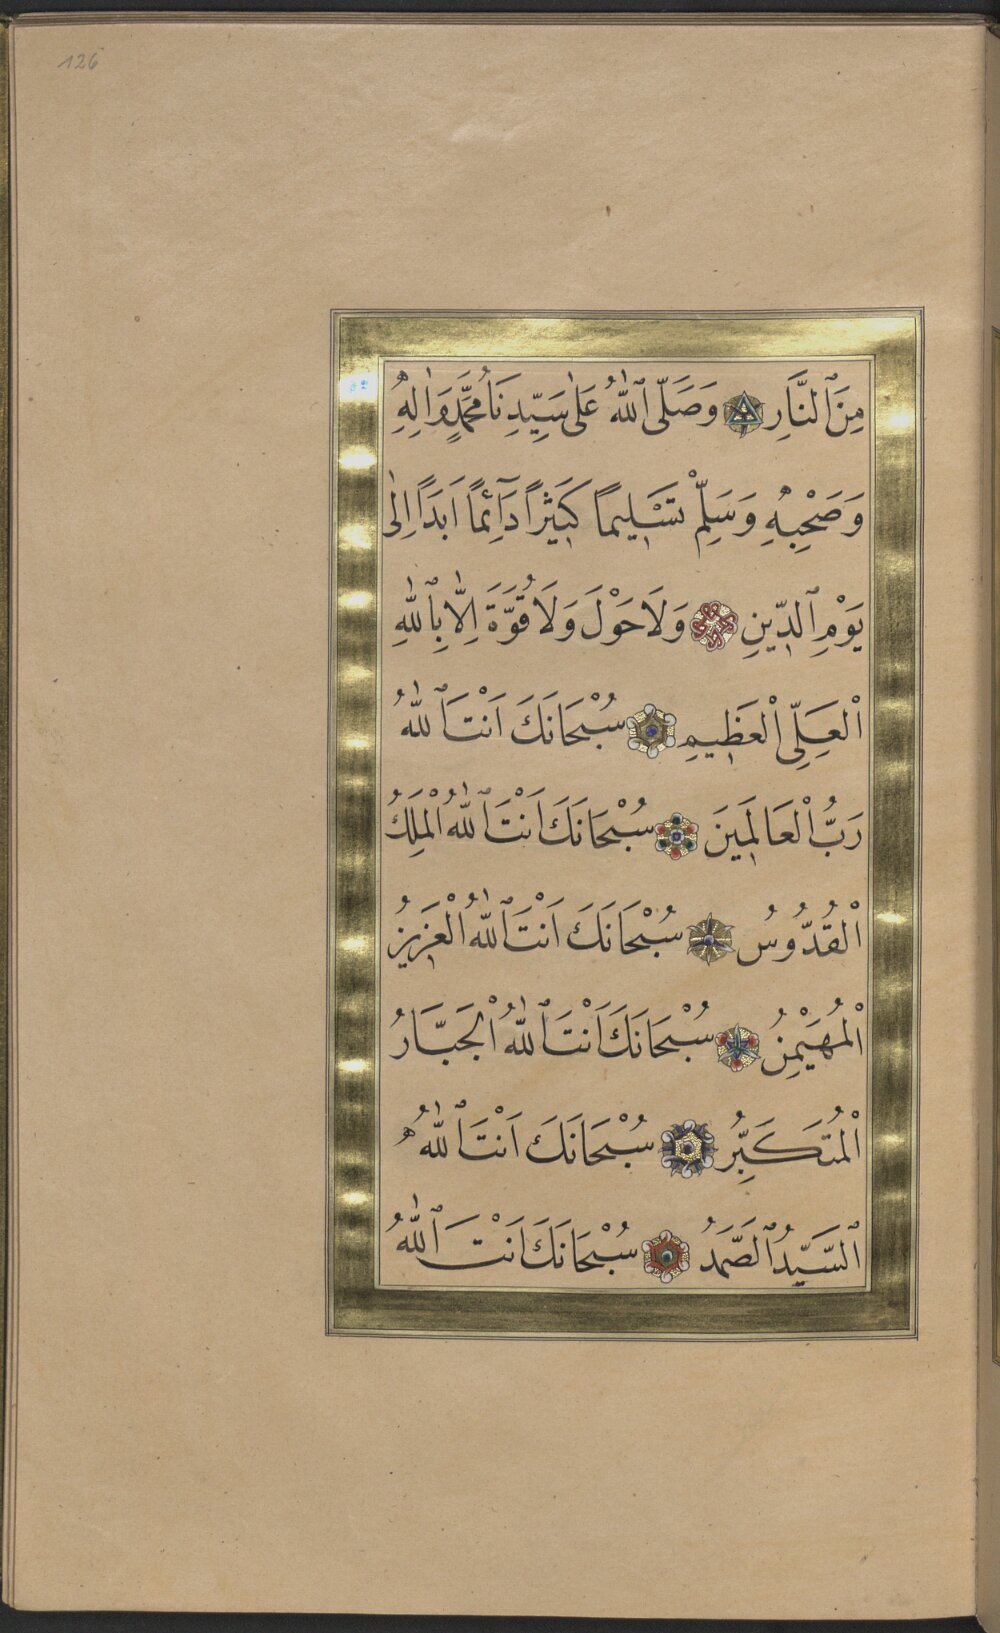 126
مِنَ ٱلنَّارِ وَصَلَّى ٱللّٰهُ عَلٰى سَيِّدِنَا مُحَمَّدٍ وَاٰلِهِ
وَصَحْبِهِ وَسَلِّمْ تَسْلِيمًا كَثِيرًا دَآئِمًا اَبَدًا اِلٰى
يَوْمِ ٱلدِّينِ وَلَا حَوْلَ وَلَا قُوَّةَ اِلَّا بِٱللّٰهِ
اْلعَلِيِّ اْلعَظِيمِ سُبْحَانَكَ اَنْتَ ٱللّٰهُ
رَبُّ اْلعَالَمِينَ سُبْحَانَكَ اَنْتَ ٱللّٰهُ اْلمَلِكُ
اْلقُدُّوسُ سُبْحَانَكَ اَنْتَ ٱللّٰهُ اْلعَزِيزُ
اْلمُهَيْمِنُ سُبْحَانَكَ اَنْتَ ٱللّٰهُ اْلجَبَّارُ
اْلمُتَكَبِّرُ سُبْحَانَكَ اَنْتَ ٱللّٰهُ
ٱلسَّيِّدُ ٱلصَّمَدُ سُبْحَانَكَ اَنْتَ ٱللّٰهُ